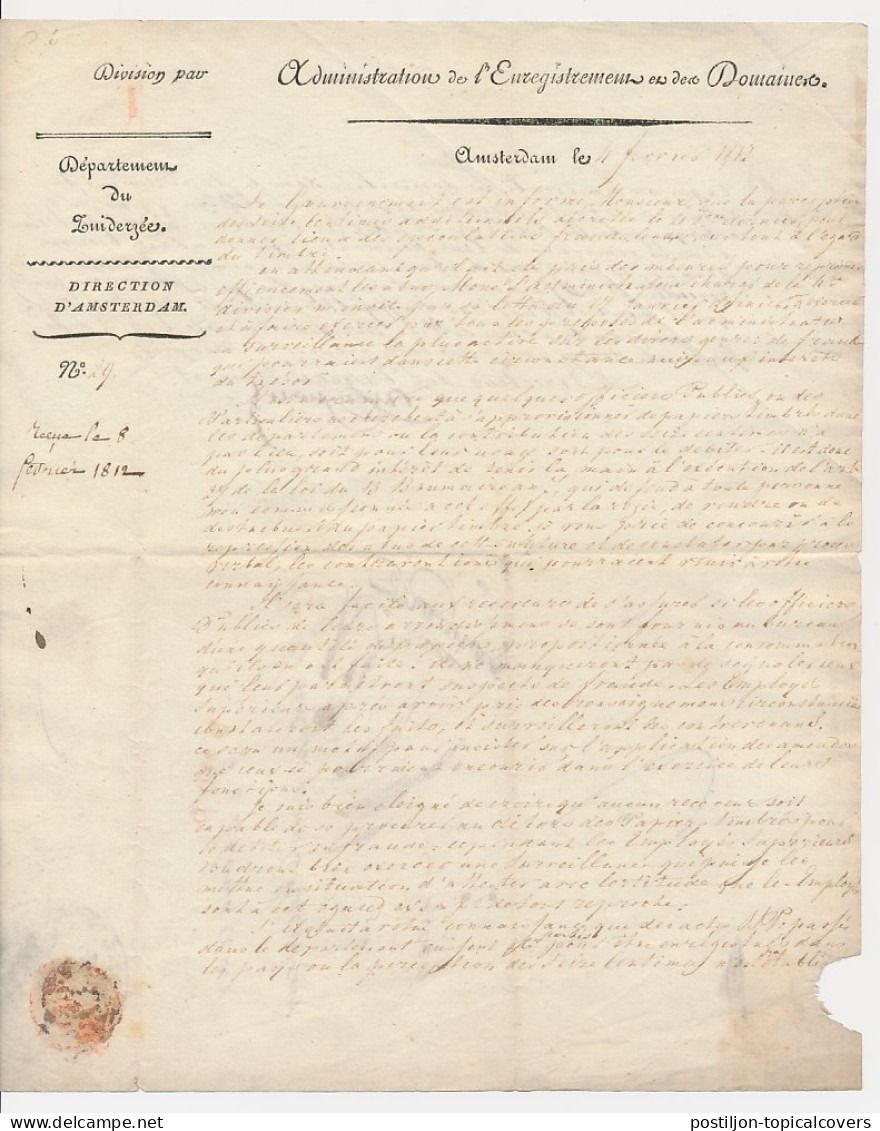 Division par
1
Administration de l'Enregistrement et des Domaines.
Département
du
Zuiderzée.
DIRECTION
D'AMSTERDAM.
N.o 29.
reçue le 8
fevrier 1812
Amsterdam le 4 fevrier 1812
Le Gouvernement est informé, Monsieur, que la perception
des seize centimes additionnels
donner lieu a des spéculations frauduleuses, surtout à l'égard
du timbre.
en attendant qu'il ait été pris des mesures pour reprimer
efficacement les abus, Mons. l'administrateur chargé de la 1re
division m'invite par sa lettre du 17 Janvier dernier, à exercer
et à faire exercer par tous les préposés de l'administration
la surveillance la plus active sur les divers genres de fraude
que pourraient dans cette circonstance nuire aux intérêts
du trésor.
que quelques officiers Publics, ou des
Particuliers ne cherchent à s'approvisionner de papiers timbrés dans
les départemens ou la contribution des seize centimes n'a
pas lieu, soit pour leur usage soit pour le débiter: il est donc
du plus grand intérêt de tenir la main à l'exécution de l'art.
27 de la loi du 13 Brumaire an 7, qui défend à toute personne
non commissionnée a cet effet par la régie, de vendre ou de
distribuer du papier timbré. je vous prie de concourir à la
repression des abus de cette nature et de constater par procès
verbal, les contraventions qui pourraient venir à votre
connaissance.
Il sera facile aux receveurs de s'assurer si les officiers
Publics de leurs arrondissemens se sont fournis au bureau
d'une quantité de papiers, proportionnée à la consommation
qu'ils en ont faite: ils ne manqueront pas de signaler ceux
qui leur paraitront suspects de fraude. Les Employés
Supérieurs après avoir pris des renseignemens circonstanciés
constateront les faits, et surveilleront les contrevenans.
ce sera un motif pour insister sur l'application des amendes
que ceux-ci pourraient encourir dans l'exercice de leurs
fonctions.
Je suis bien éloigné de croire qu'aucun receveur soit
capable de se procurer au dehors des Papiers timbrés pour
le débiter en fraude: cependant les Employés Supérieurs
voudront bien exercer une surveillance qui puisse les
mettre en situation d'attester avec certitude que les Employés
sont à cet égard exempts de tout reproche.
connaissance que des actes S.S.P. passés
dans le département où sont portés pour être enregistrés dans
les pays où la perception des seize centimes n'est établie
postiljon-topicalcovers